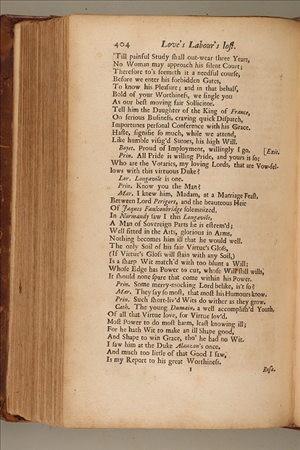 404 Love's Labour's lost.
'Till painful Study shall out-wear three Years,
No Woman may approach his silent Court;
Therefore to's seemeth it a needful course,
Before we enter his forbidden Gates,
To know his Pleasure; and in that behalf,
Bold of your Worthiness, we single you
As our best moving fair Sollicitor.
Tell him the Daughter of the King of France,
On serious Business, craving quick Dispatch,
Importunes personal Conference with his Grace.
Haste, signifie so much, while we attend,
Like humble visag'd Sutors, his high Will.
Boyet. Proud of Employment, willingly I go. [Exit.
Prin. All Pride is willing Pride, and yours is so;
Who are the Votaries, my loving Lords, that are Vow-fel-
lows with this vertuous Duke?
Lor. Longavile is one.
Prin. Know you the Man?
Mar. I knew him, Madam, at a Marriage Feast,
Between Lord Perigort, and the beauteous Heir
Of Jaques Fauleonbridge solemnized.
In Normandy saw I this Longavile,
A Man of Sovereign Parts he is esteem'd;
Well fitted in the Arts, glorious in Arms,
Nothing becomes him ill that he would well.
The only Soil of his fair Virtue's Gloss,
(If Virtue's Gloss will stain with any Soil,)
Is a sharp Wit match'd with too blunt a Will;
Whose Edge has Power to cut, whose Will still wills,
It should none spare that come within his Power.
Prin. Some merry-mocking Lord belike, is't so?
Mar. They say so most, that most his Humours know.
Prin. Such short-liv'd Wits do wither as they grow.
Cath. The young Dumain, a well accomplish'd Youth,
Of all that Virtue love, for Virtue lov'd.
Most Power to do most harm, least knowing ill;
For he hath Wit to make an ill Shape good,
And Shape to win Grace, tho' he had no Wit.
I saw him at the Duke Alanzon's once,
And much too little of that Good I saw,
Is my Report to his great Worthiness.
1 Rosa.